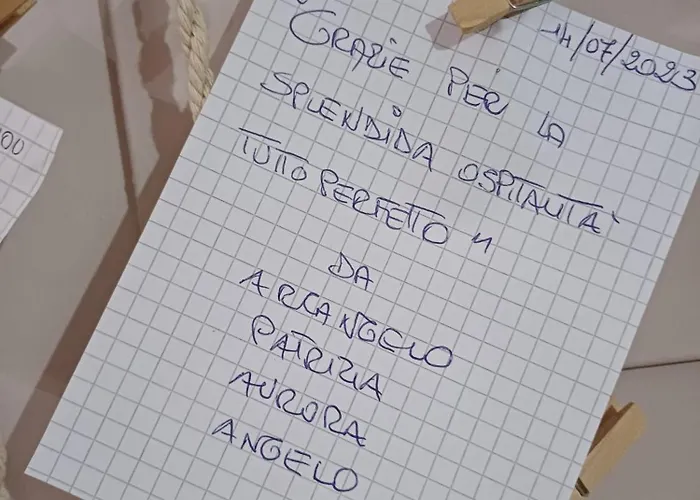 14/07/2023
GRAZIE PER LA
SPLENDIDA OSPITALITA`
TUTTO PERFETTO "
DA
ARCANGELO
PATRIZIA
AURORA
ANGELO
00